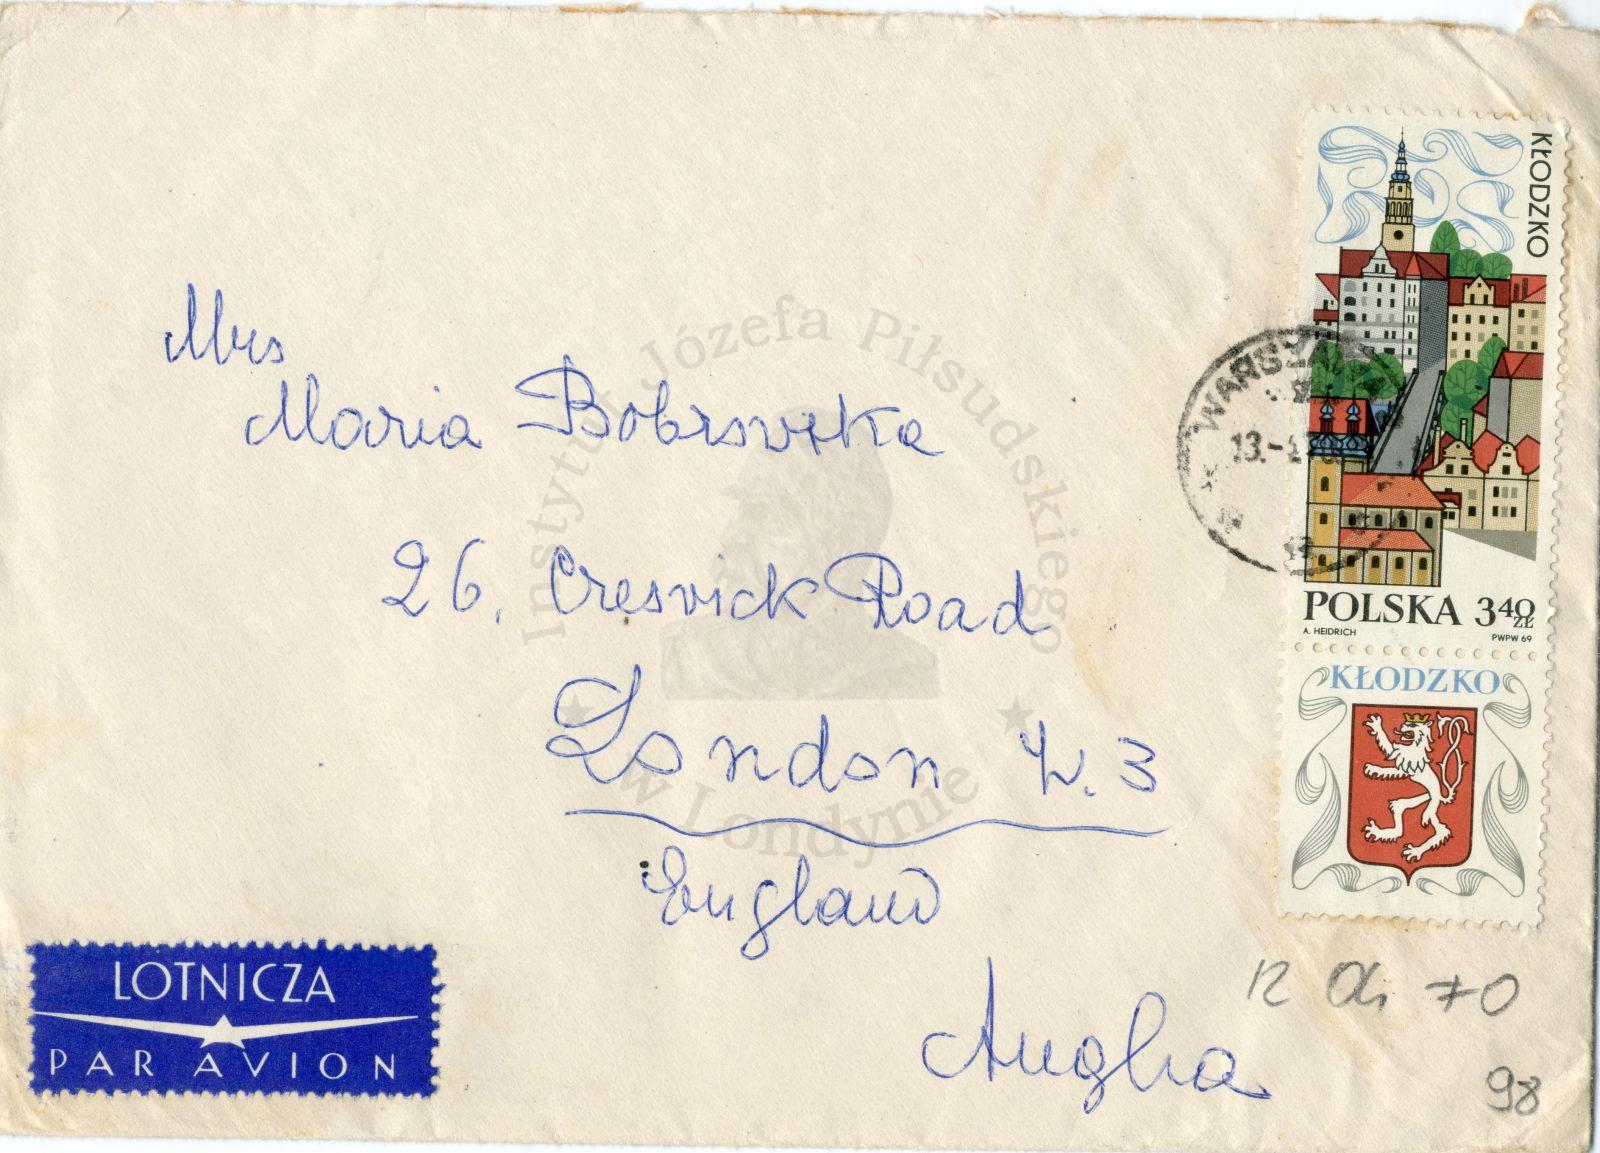 KŁODZKO
WARSZAWA
13.
12
POLSKA 3 40 ZŁ
A. HEIDRICH PWPW 69
KŁODZKO
Mrs
Maria Bobrowska
26, Creswick Road
London W. 3
England
Anglia
LOTNICZA
PAR AVION
70
98
Instytut Józefa Piłsudskiego
w Londynie